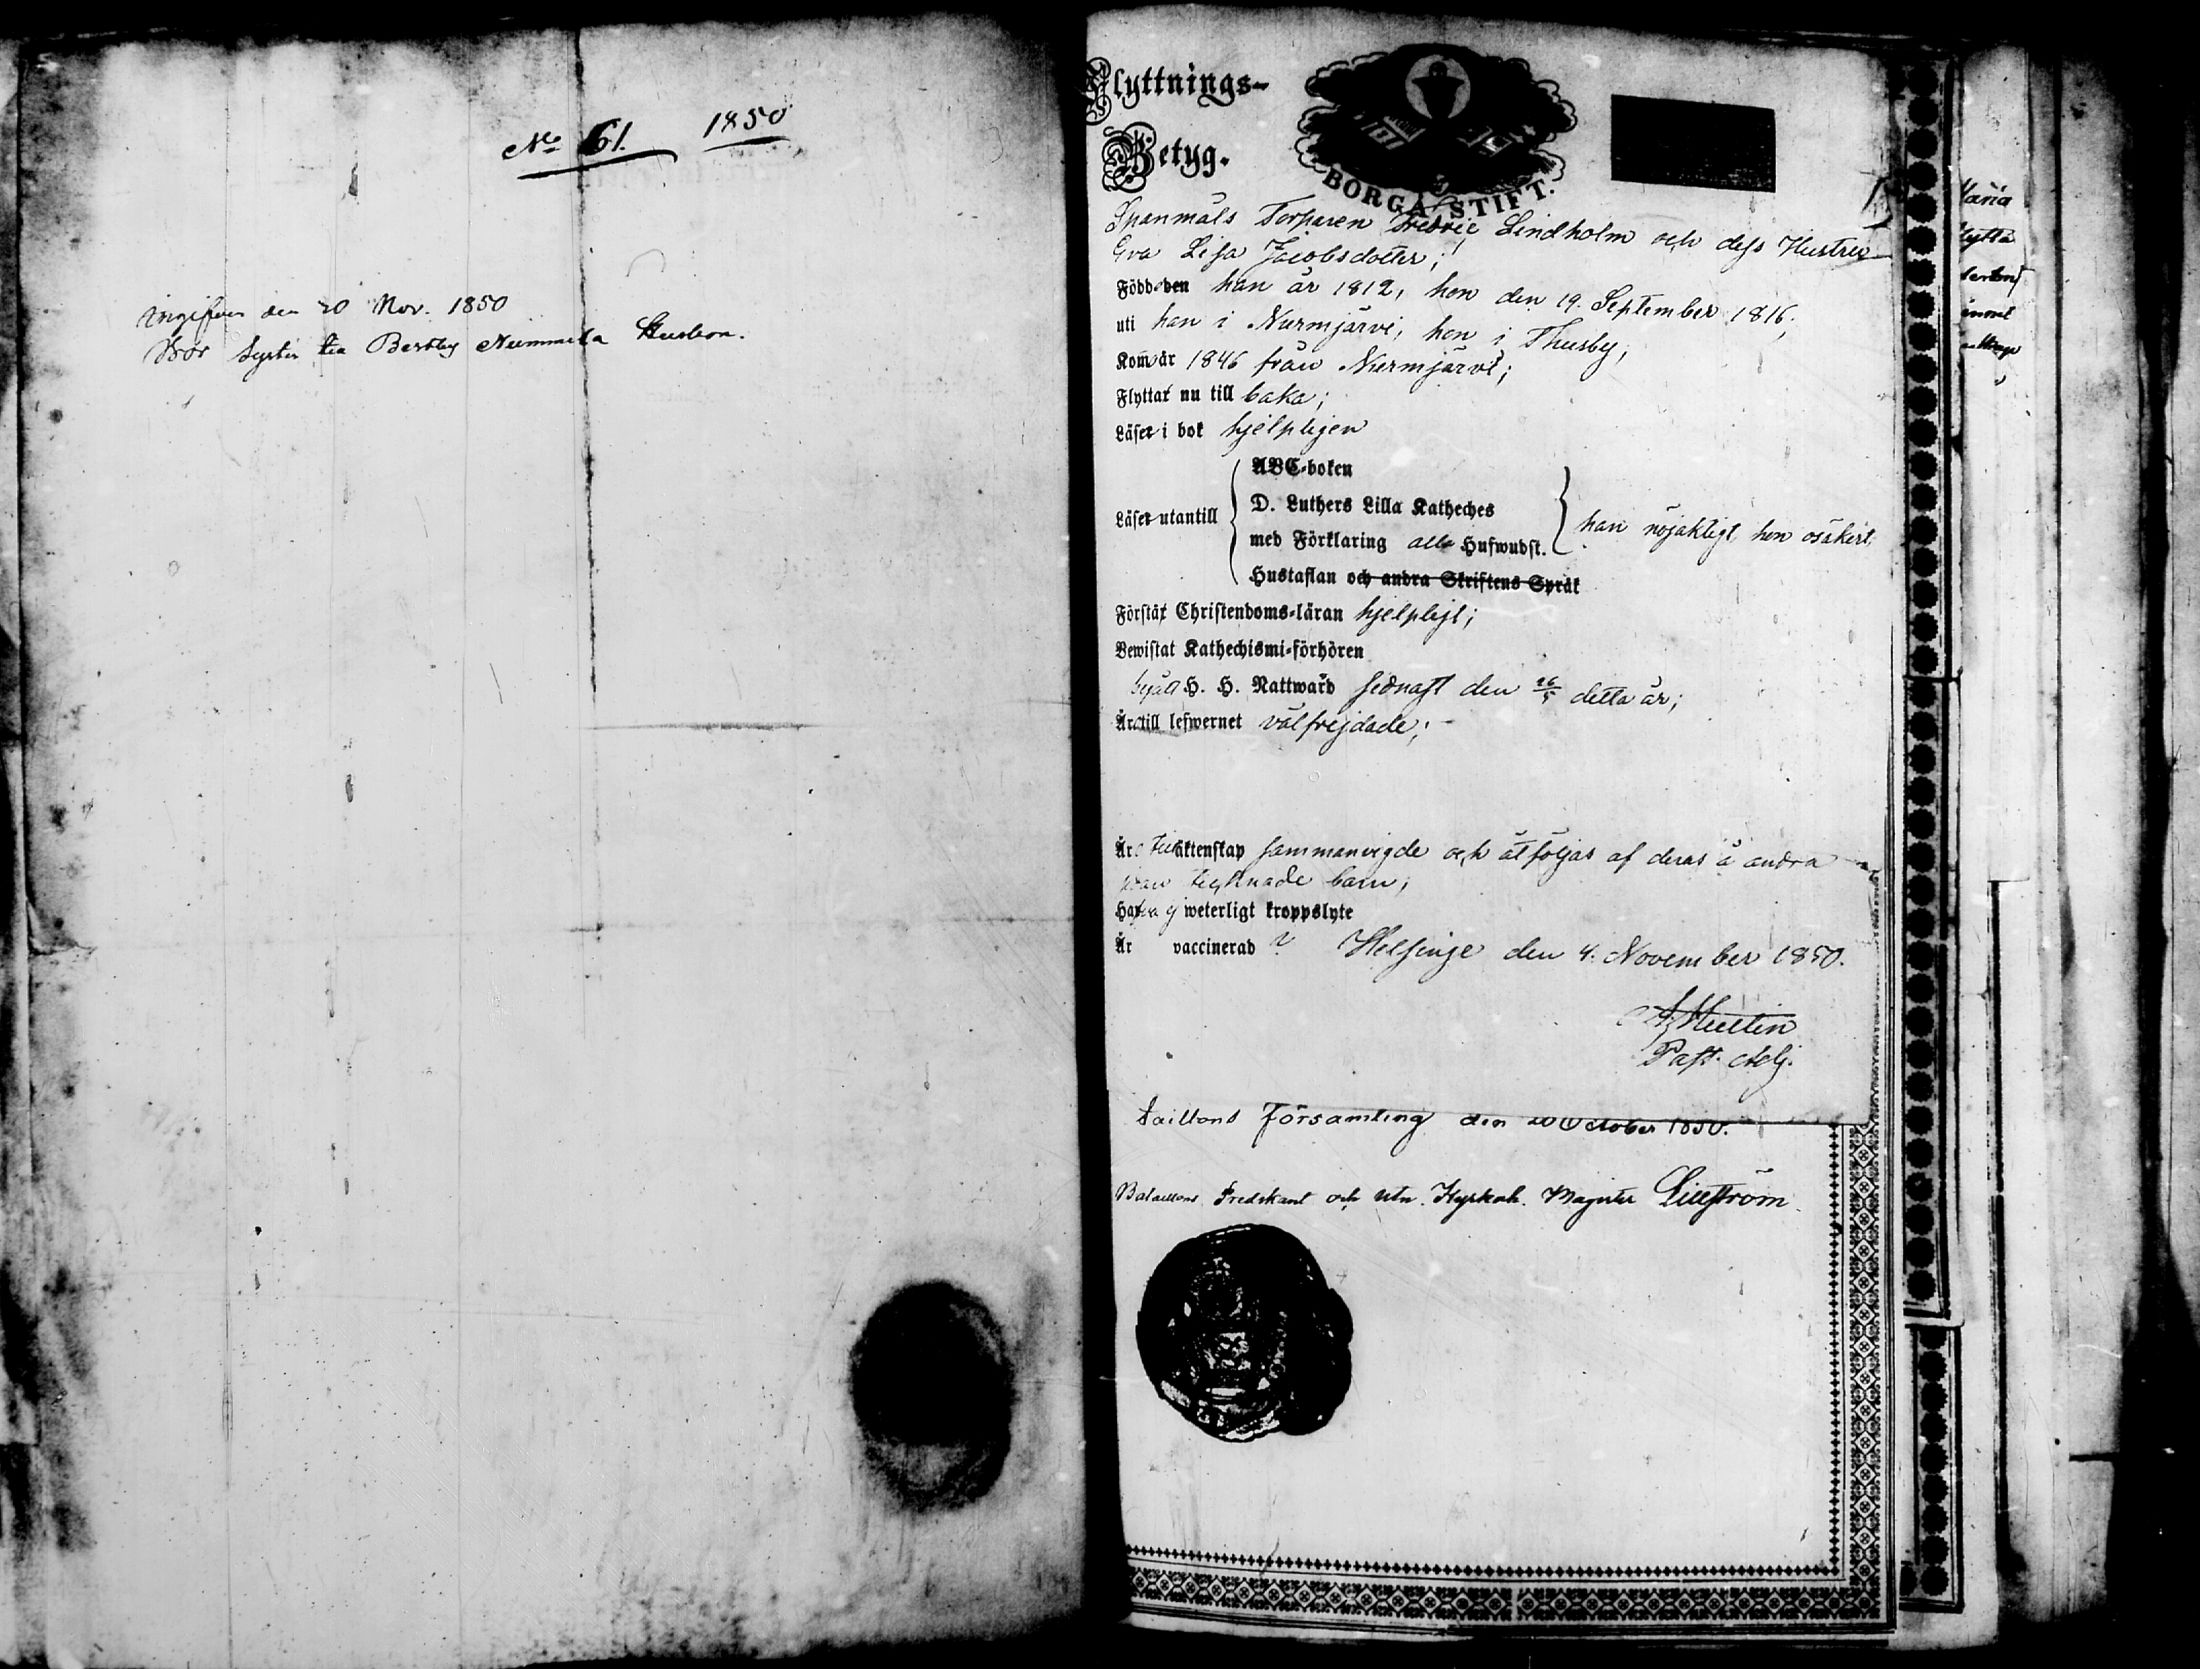 No 61. 1850
ingifven den 20 Nov. 1850
Bor Berthy Nummela
Flyttnings-
Betyg.
BORGÅ STIFT.
Spanmåls Torparen Fredric Lindholm och dess Hustru
Eva Lisa Jacobsdotter;
Född den han år 1812, hon den 19. September 1816;
uti han i Nurmjärvi, hon i Thusby,
Kom år 1846 från Nurmjärvi;
Flyttar nu till baka;
Läser i bok hjelpligen
ABC-boken
D. Luthers Lilla Katheches
Läser utantill
han nöjaktigt, hon osäkert,
med Förklaring alla Hufwudst.
Hustaflan och andra Skriftens Språk
Förstår Christendoms-läran hjelpligt;
Bewistat Kathechismi-förhören
begått H. H. Nattward sednast den 26/5 detta år;
Äro till lefwernet välfrejdade;
Äro till äktenskap sammanvigde och åtföljas af deras å andra
sidan tecknade barn;
Hafva ej weterligt kroppslyte
Är vaccinerad ? Helsinge den 4. November 1850.
Past. Adj.
taillons Församling den 20 October 1850.
Bataillons Predikant och Magister Liljeström
Maria
flytta